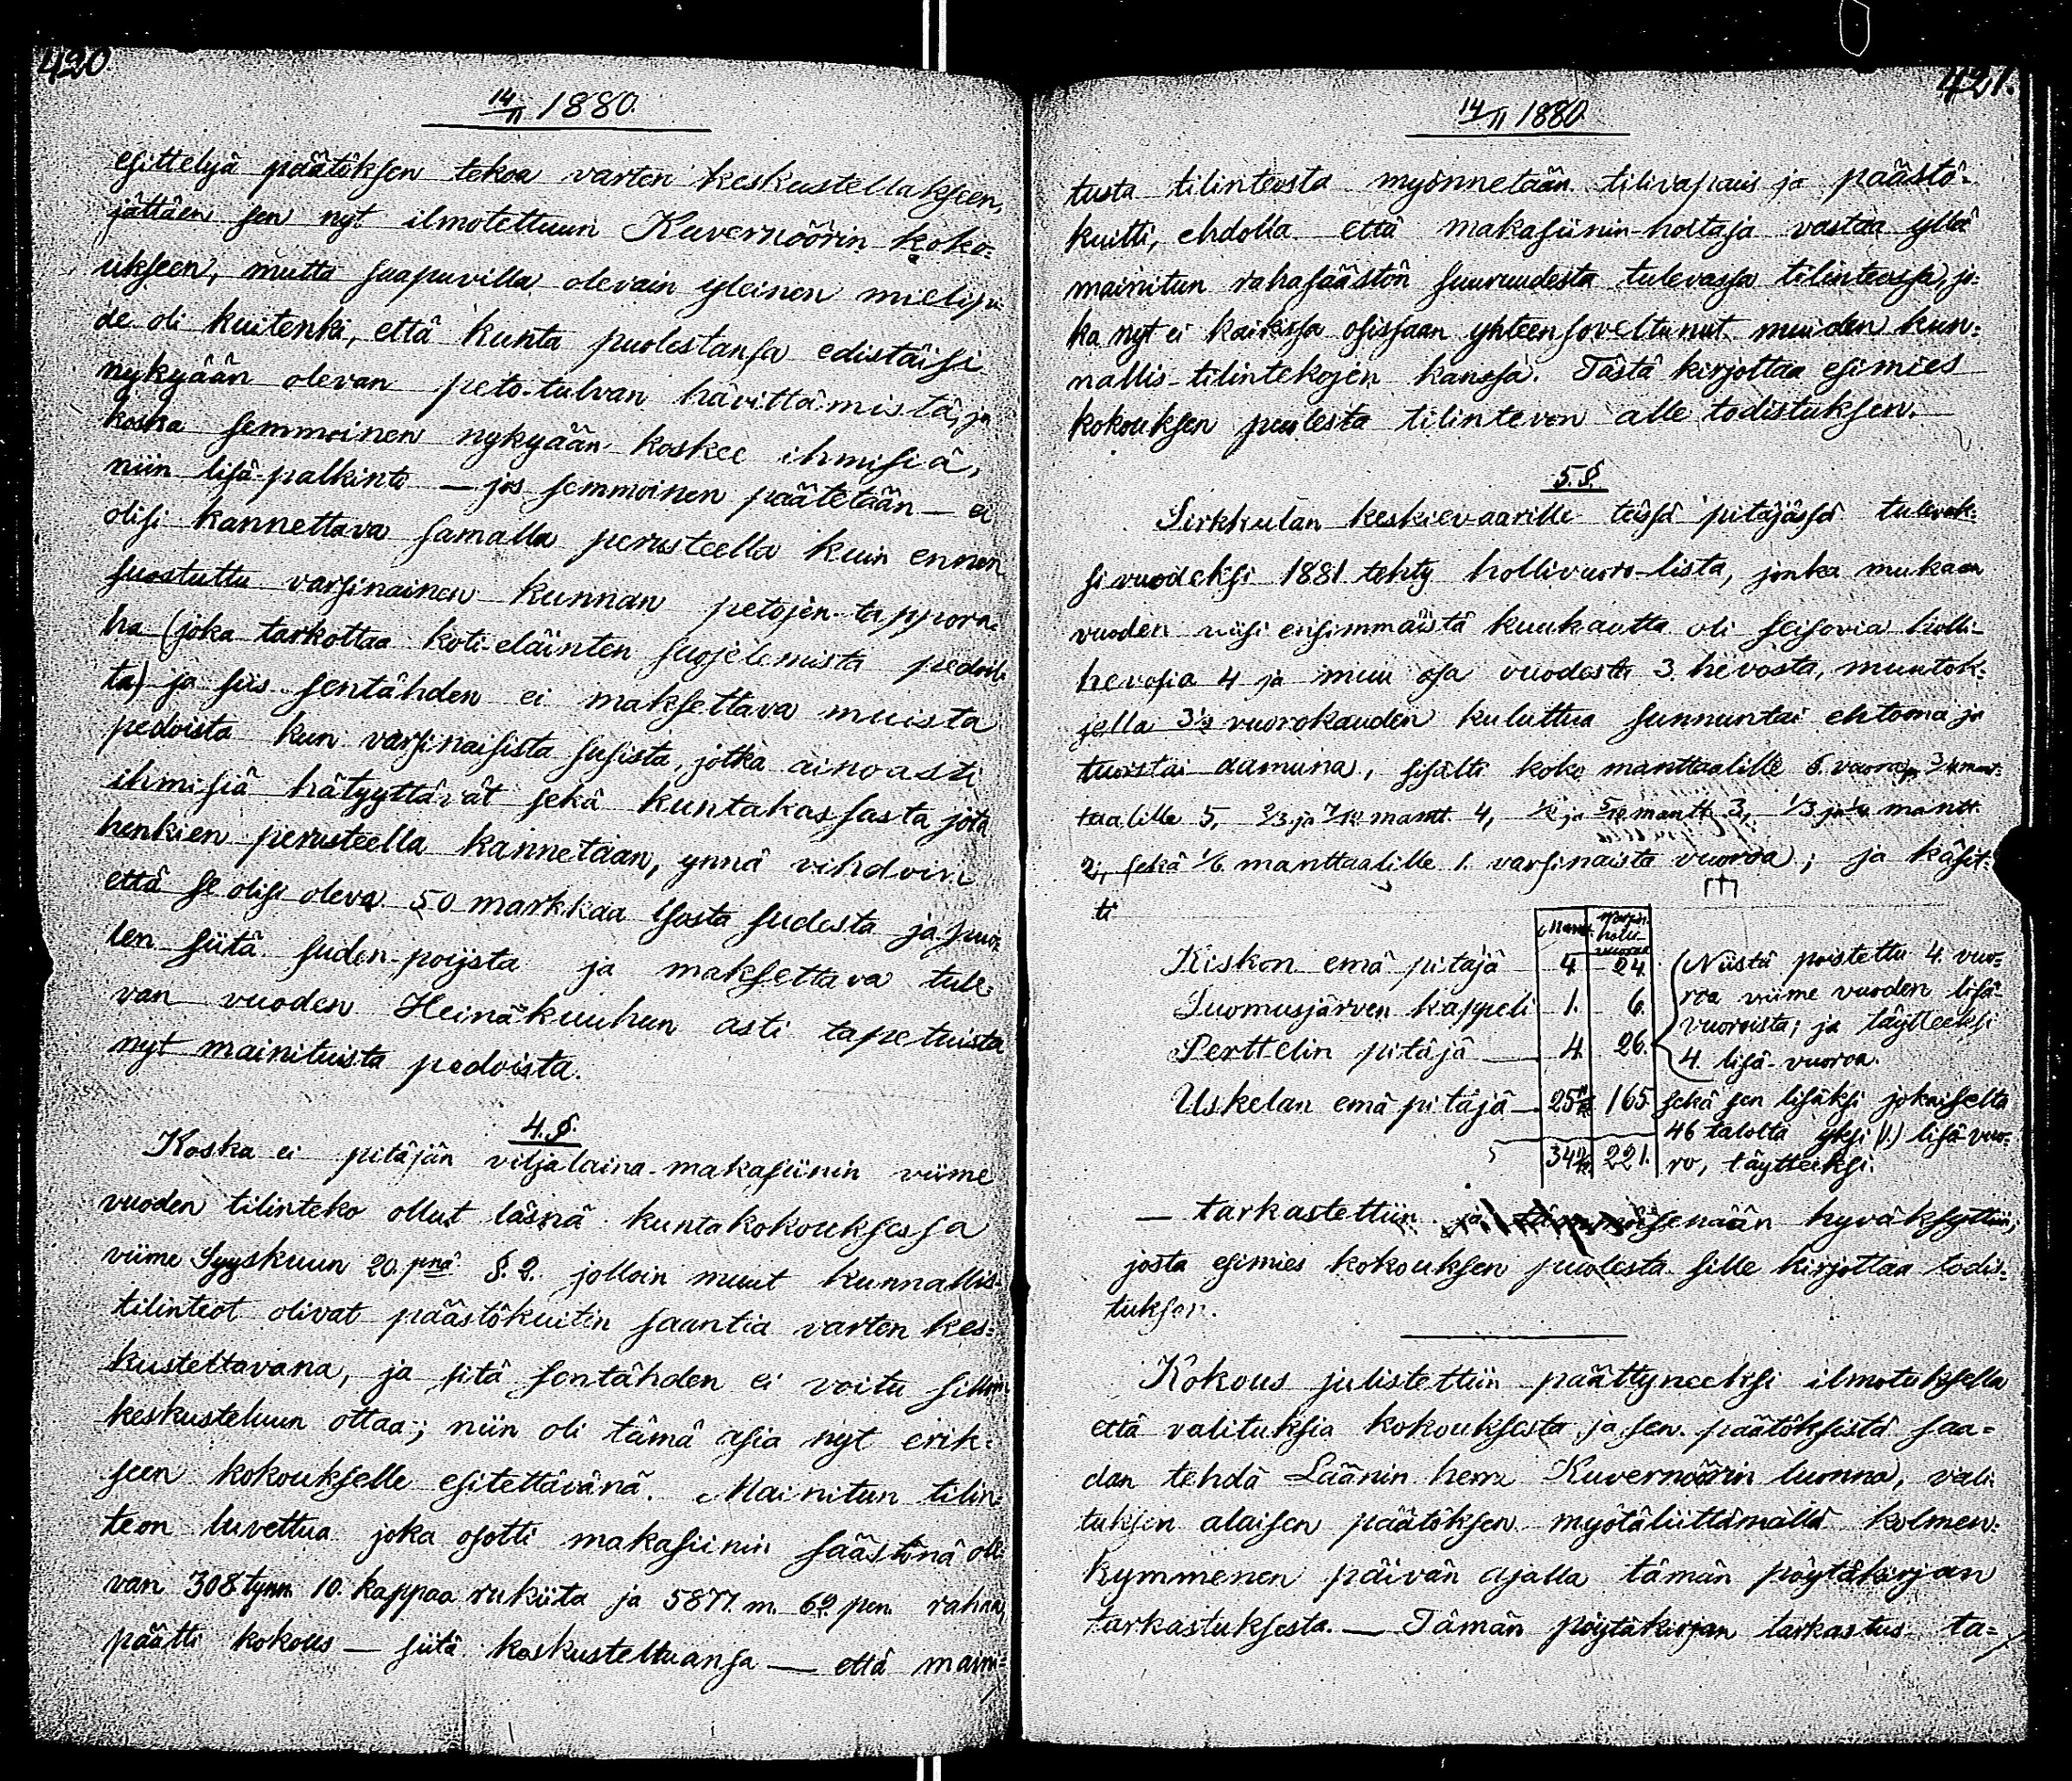 420
14/11 1880.
esittelyä päätöksen tekoa varten keskustellakseen,
jättäen sen nyt ilmotettuun Kuvernöörin koko=
ukseen, mutta saapuvilla olevain yleinen mielipi
de oli kuitenki, että kunta puolestansa edistäisi
nykyään olevan peto-tulvan hävittämistä, ja
koska semmoinen nykyään koskee ihmisiä,
niin lisä-palkinto — jos semmoinen päätetään — ei
olisi kannettava samalla perusteella kuin ennen
suostuttu varsinainen kunnan petojen-tappora-
ha (joka tarkottaa koti-eläinten suojelemista pedoil
ta) ja siis sentähden ei maksettava muista
pedoista kun varsinaisista susista, jotka ainoasti
ihmisiä hätyyttävät sekä kuntakassasta jota
henkien perusteella kannetaan, ynnä vihdoin
että se olisi oleva 50 markkaa isosta sudesta ja puo
len siitä suden-poijsta ja maksettava tule=
van vuoden Heinäkuuhun asti tapetuista
nyt mainituista pedoista.
4. §.
Koska ei pitäjän viljalaina-makasiinin viime
vuoden tilinteko ollut läsnä kuntakokouksessa
viime Syyskuun 20. pnä §. 2. jolloin muut kunnallis-
tilinteot olivat päästökuitin saantia varten kes=
kusteltavana, ja sitä sentähden ei voitu silloin
keskusteluun ottaa; niin oli tämä asia nyt erik=
seen kokoukselle esitettävänä. Mainitun tilin=
teon luvettua joka osotti makasiinin säästönä ole
van 308 tynn. 10. kappaa rukiita ja 5877. m. 62 pen. rahaa,
päätti kokous — siitä keskusteltuansa — että maini=
421.
14/11 1880.
tusta tilinteosta myönnetään tilivapaus ja päästö=
kuitti, ehdolla että makasiinin-hoitaja vastaa yllä
mainitun rahasäästön suuruudesta tulevassa tilinteossa, jo=
ka nyt ei kaikissa osissaan yhteensoveltunut muiden kun=
nallis-tilintekojen kanssa. Tästä kirjottaa esimies
kokouksen puolesta tilinteon alle todistuksen.
5. §.
Sirkkulan keskievaarille tässä pitäjässä tulevak=
si vuodeksi 1881 tehty hollivuoro-lista, jonka mukaan
vuoden viisi ensimmäistä kuukautta oli seisovia holli-
hevosia 4 ja muu osa vuodesta 3. hevosta, muutok=
sella 3½ vuorokauden kuluttua sunnuntai ehtoona ja
tuorstai aamuna, sisälti koko manttaalille 6. vuoroa, 3/4 mant=
taalille 5, 2/3 ja 7/12 mantt. 4, 1/2 ja 5/12 mantt. 3, 1/3 ja 1/4 mantt.
2, sekä 1/6 manttaalille 1. varsinaista vuoroa; ja käsit=
ti
Mant. varsin. holli- vuoroa
Kiskon emä pitäjä 4. 24. Niistä poistettu 4. vuo=
roa viime vuoden lisä-
Suomusjärven kappeli 1. 6. vuoroista; ja täytteeksi
Perttelin pitäjä — 4. 26. 4. lisä-vuoroa.
Uskelan emä pitäjä — 25 165 sekä sen lisäksi jokaiselta
46 talolta yksi (1.) lisä-vuo=
34 221. ro, täytteeksi.
— tarkastettiin ja hyväksyttiin;
josta esimies kokouksen puolesta sille kirjottaa todis=
tuksen.
Kokous julistettiin päättyneeksi ilmotuksella
että valituksia kokouksesta ja sen päätöksistä saa=
dan tehdä Läänin herra Kuvernöörin luonna, vali
tuksen alaisen päätöksen myötäliittämällä kolmen=
kymmenen päivän ajalla tämän pöytäkirjan
tarkastuksesta. — Tämän pöytäkirjan tarkastus ta=